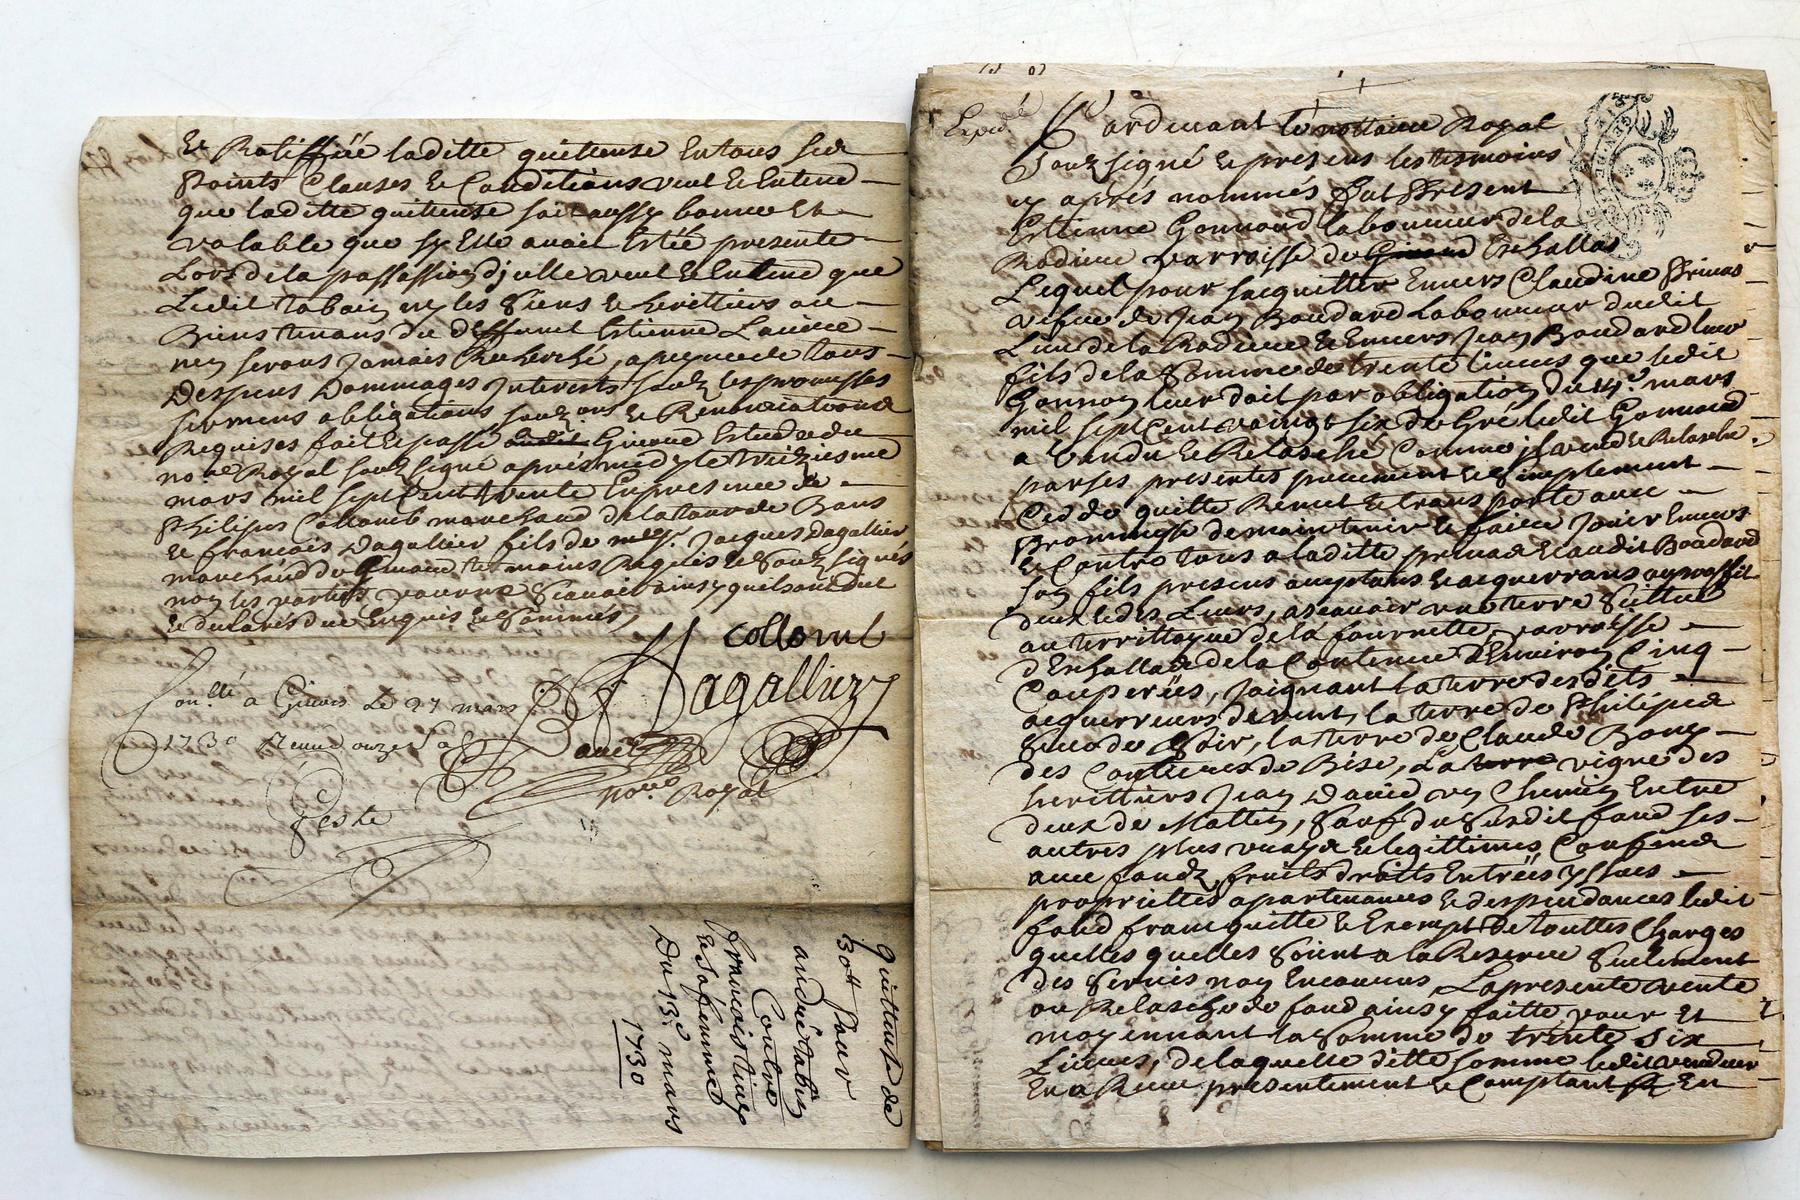 Et Ratiffiée laditte quittense Entous Ses
Points Clauses & Conditions veut & Entend
que laditte quittense soit aussy bonne Et
valable que sy Elle avait Estée presente
Lors de la passassion dj celle veut & Entend que
Ledit tabain ny les Siens & herittiers ou
Biens tenans du deffunt Estienne
ney serons Jamais Recherché, a peyne de tous
Despens Dommages Interests soubz les promesses
sermens obligations, & Renonciations
Requises fait & passé audit Girond Estude du
no.re Royal soubz signé aprés midy le treiziesme
mars mil sept Cent trente En presence de
Philipes Collomb marchand de la tour de Bans
& francois Dagallier fils de me. Jacques Dagallier
marchand de temoins Requis & soubz signés
non les parties pour ne scavoir ainsy quils ont dit
& declarés de ce Enquis & Sommés
Collomb
Dagallier
Con.llé a Le 27 mars
1730 Reçeu onze sols
no.re Royal
Quittense de
30ᵗᵗ Pour
andré tabin
Contre
francois
& sa femme
Du 13.e mars
1730
Exped.é
Pardevant le nottaire Royal
Soubz signé & presens les tesmoins
cy aprés nommés fut Present
Estienne Gonnond laboureur de la
Radiere parroisse de Girond
Lequel pour sacquitter Envers Claudine Prinas
vefve de Jean Boudard laboureur dudit
Lieu de la Radiere & Envers Jean Boudard leur
fils de la Somme de trente Livres que ledit
Gonnon leur doit par obligation du 14.e mars
mil sept Cent vaingt six de Gré ledit Gonnond
a Vandu & Relasché Comme jl vend & Relasche
par ses presentes purement & simplement
Cedde quitte Remet & transporte avec
Promesse de maintenir & faire Jouir Envers
& Contre tous a laditte prinas & audit Boudard
son fils presens acceptans & acquerrans au proffit
deux & des Leurs, ascavoir une terre Scittuée
au territtoyre de la fournette, parroisse
de la Contenue d'Environ Cinq
Couperées, Joignant la terre desdits
acquerreurs de vent, la terre de Philipes
de Soir, la terre de Claude
des de Bise, La terre vigne des
herittiers Jean David un Chemin Entre
deux de Mattin, Sauf du Susdit fond ses
autres plus vrays & legittimes Confins
avec fondz fruits droits Entrées yssues
propriettes apartenances & despendances ledit
fond franc quitte & Exempt de touttes Charges
quelles quelles Soint a la Reserve Seulement
des Servis non Encourus La presente vente
ou Relasche de fond ainsy faitte pour Et
moyennant la Somme de trente six
Livres, de laquelle ditte Somme ledit vendeur
En a Receu presentement & Comptant En